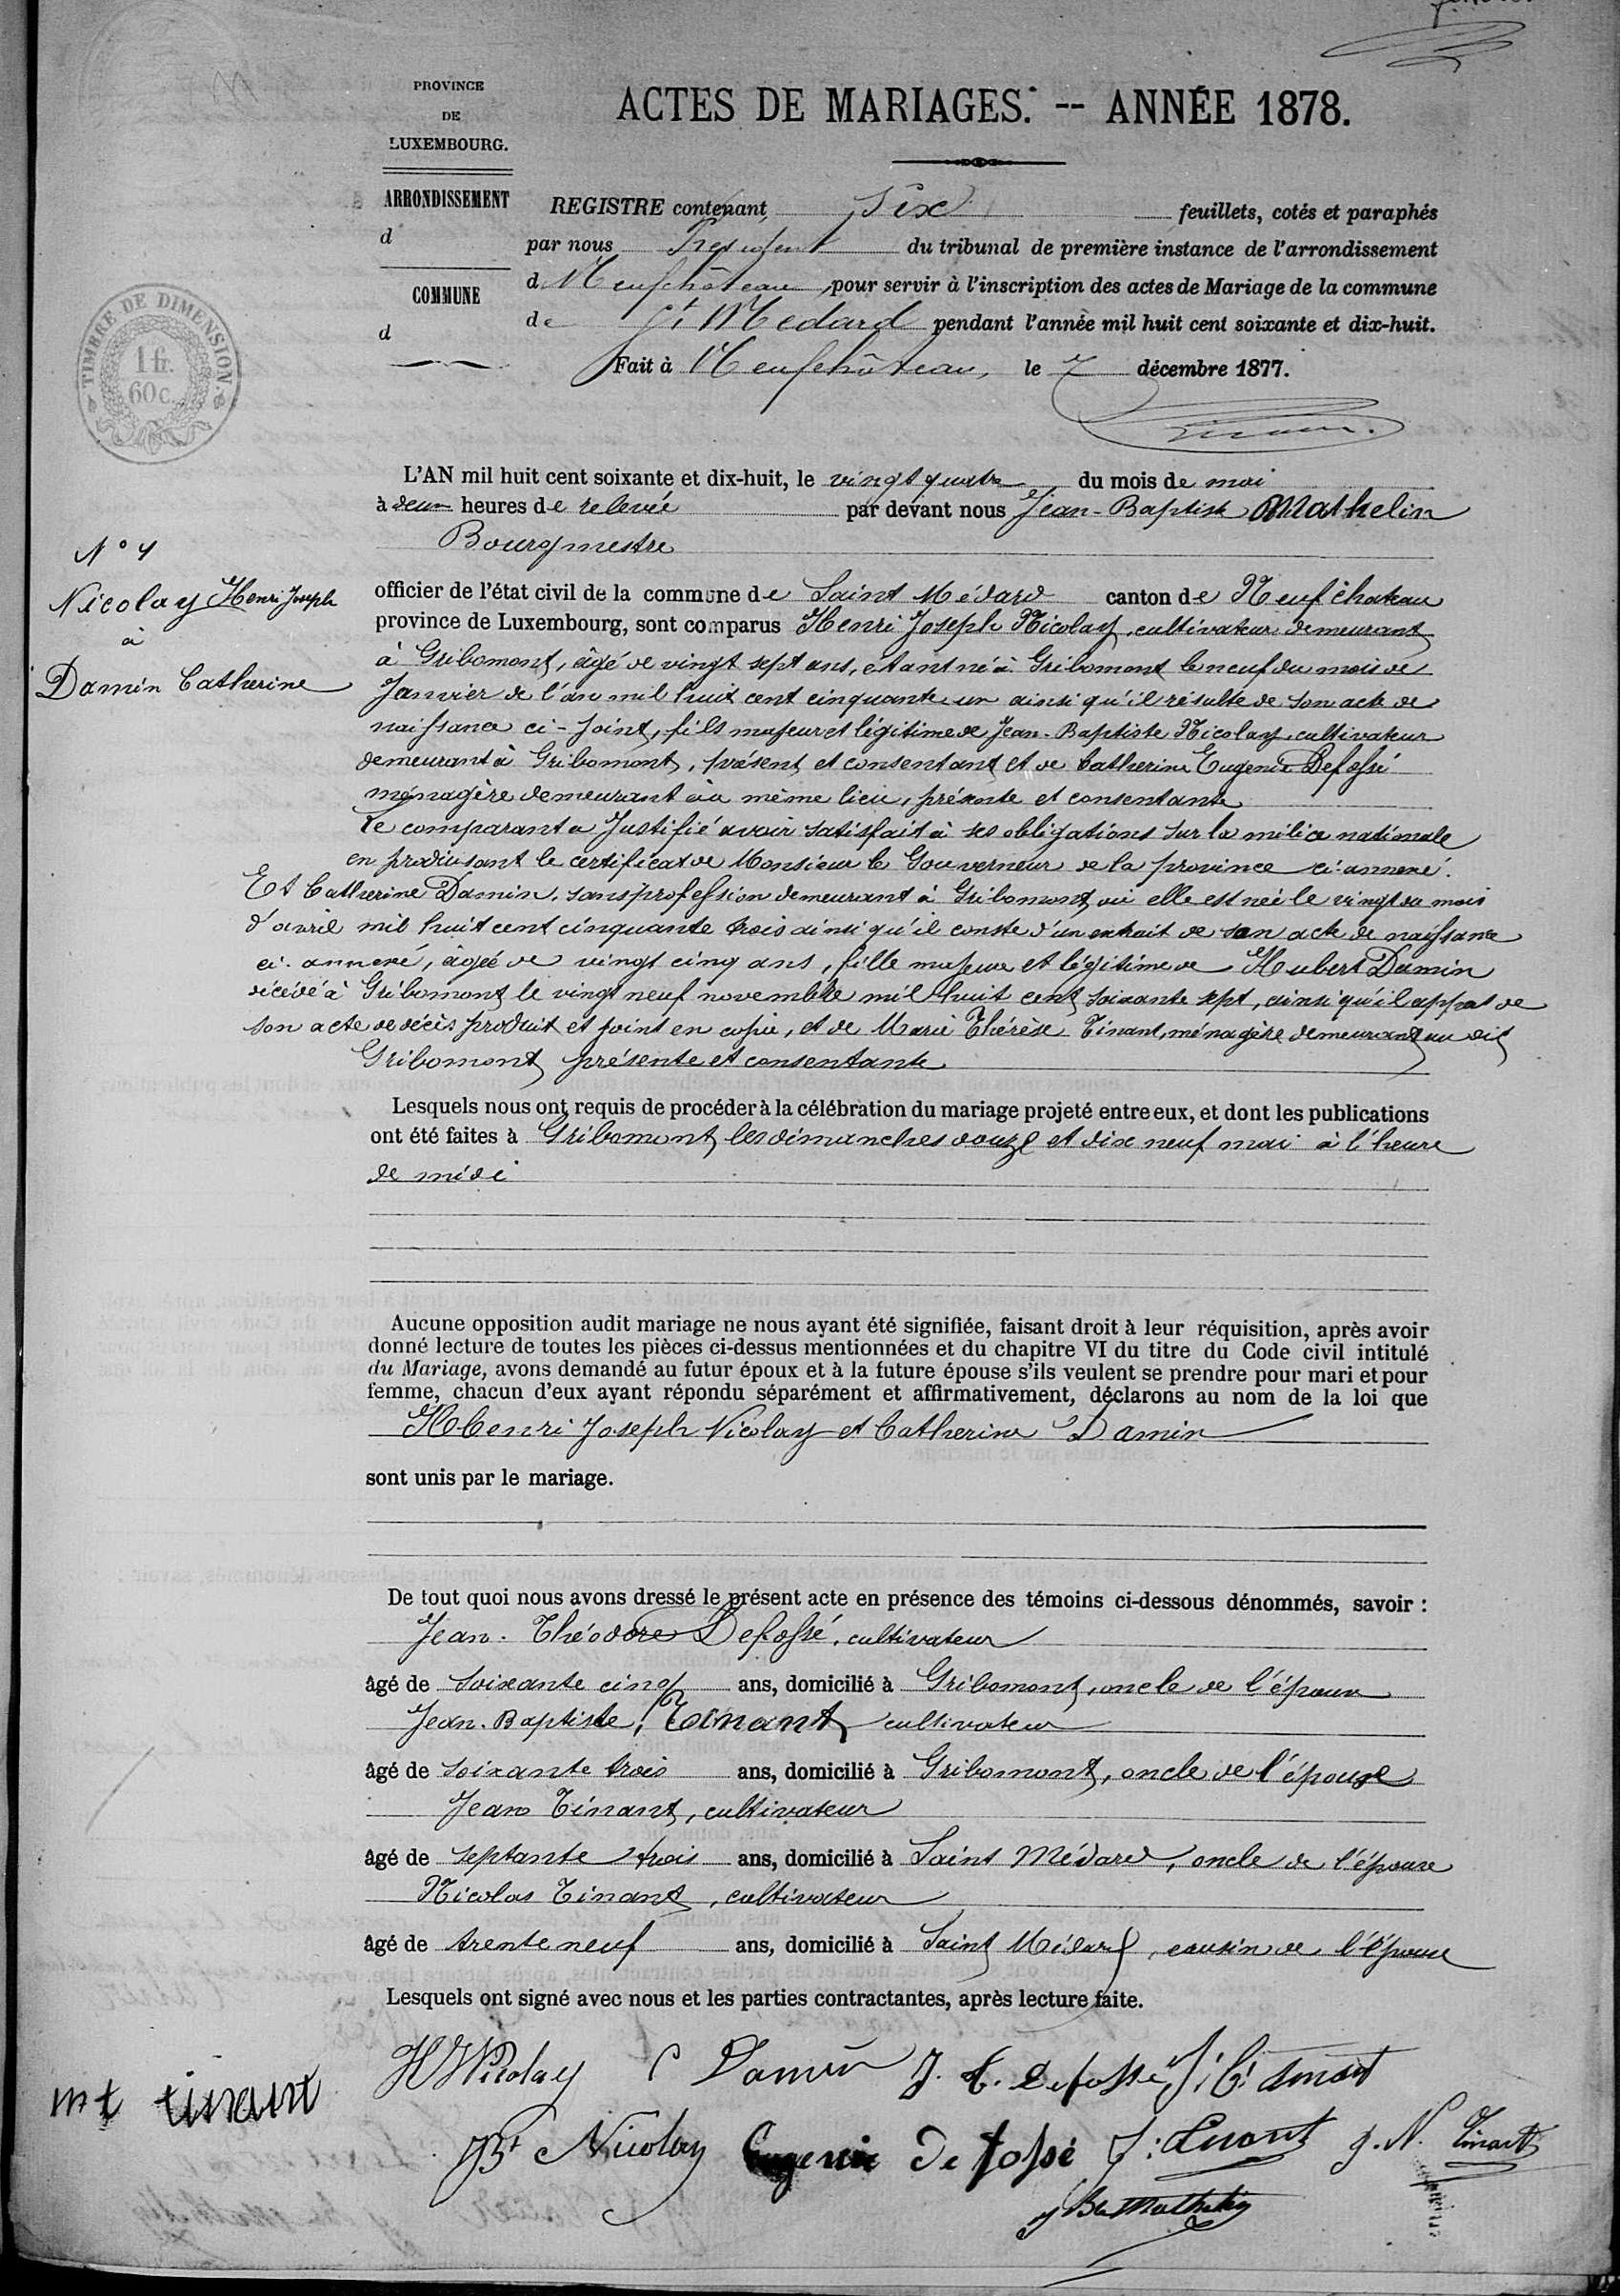 PROVINCE
DE
LUXEMBOURG.
ARRONDISSEMENT
d
COMMUNE
d
TIMBRE DE DIMENSION
1 fr.
60 c.
ACTES DE MARIAGES. -- ANNÉE 1878.
REGISTRE contenant six feuillets, cotés et paraphés
par nous Président du tribunal de première instance de l'arrondissement
de Neufchâteau, pour servir à l'inscription des actes de Mariage de la commune
de St Médard pendant l'année mil huit cent soixante et dix-huit.
Fait à Neufchâteau, le 7 décembre 1877.
L'AN mil huit cent soixante et dix-huit, le vingt quatre du mois de mai
à deux heures de relevée par devant nous Jean-Baptiste Mathelin
Bourgmestre
N° 4
Nicolay Henri Joseph
à
Damin Catherine
officier de l'état civil de la commune de Saint Médard canton de Neufchateau
province de Luxembourg, sont comparus Henri Joseph Nicolay, cultivateur demeurant
à Gribomont, âgé de vingt sept ans, étant né à Gribomont le neuf du mois de
Janvier de l'an mil huit cent cinquante un ainsi qu'il résulte de son acte de
naissance ci-joint, fils majeur et légitime de Jean-Baptiste Nicolay cultivateur
demeurant à Gribomont, présent et consentant et de Catherine Eugenie Defossé
ménagère demeurant au même lieu, présente et consentante
Le comparant a Justifié avoir satisfait à ses obligations sur la milice nationale
en produisant le certificat de Monsieur le Gouverneur de la province ci-annexé.
Et Catherine Damin, sans profession demeurant à Gribomont où elle est née le vingt du mois
d'avril mil huit cent cinquante trois ainsi qu'il conste d'un extrait de son acte de naissance
ci-annexé, âgée de vingt cinq ans, fille majeure et légitime de Hubert Damin
décédé à Gribomont le vingt neuf novembre mil huit cent soixante sept, ainsi qu'il appert de
son acte de décès produit et joint en copie, et de Marie Thérèse Tinant, ménagère demeurant au dit
Gribomont présente et consentante
Lesquels nous ont requis de procéder à la célébration du mariage projeté entre eux, et dont les publications
ont été faites à Gribomont les dimanches douze et dix neuf mai à l'heure
de midi
Aucune opposition audit mariage ne nous ayant été signifiée, faisant droit à leur réquisition, après avoir
donné lecture de toutes les pièces ci-dessus mentionnées et du chapitre VI du titre du Code civil intitulé
du Mariage, avons demandé au futur époux et à la future épouse s'ils veulent se prendre pour mari et pour
femme, chacun d'eux ayant répondu séparément et affirmativement, déclarons au nom de la loi que
Henri Joseph Nicolay et Catherine Damin
sont unis par le mariage.
De tout quoi nous avons dressé le présent acte en présence des témoins ci-dessous dénommés, savoir :
Jean-Théodore Defossé, cultivateur
âgé de soixante cinq ans, domicilié à Gribomont, oncle de l'époux
Jean-Baptiste, Tinant cultivateur
âgé de soixante trois ans, domicilié à Gribomont, oncle de l'épouse
Jean Tinant, cultivateur
âgé de septante trois ans, domicilié à Saint Médard, oncle de l'épouse
Nicolas Tinant, cultivateur
âgé de trente neuf ans, domicilié à Saint Médard, cousin de l'épouse
Lesquels ont signé avec nous et les parties contractantes, après lecture faite.
HJNicolay C Damin J. T. Defossé
mt tinant
JBt Nicolay Eugenie Defossé J: Tinant J. N. Tinant
J Bte Mathelin